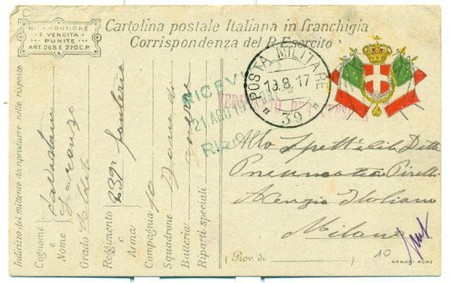 RIPRODUZIONE
E VENDITA
PUNITE
ART. 268 E 270 C.P.
Cartolina postale Italiana in franchigia
Corrispondenza del R. Esercito
POSTA MILITARE
19.8.17
* 39 *
RICEV
21 AGO 19
RIS
Indirizzo del mittente da riprodurre nelle risposte
Cognome
e
Nome
Grado
Reggimento 239° fanteria
o
Arma
Compagnia
Squadrone
Batteria
Riparti speciali
Allo Spettabile Ditta
Pneumatici Pirelli
Agenzia Italiana
Milano
(Prov. di
10